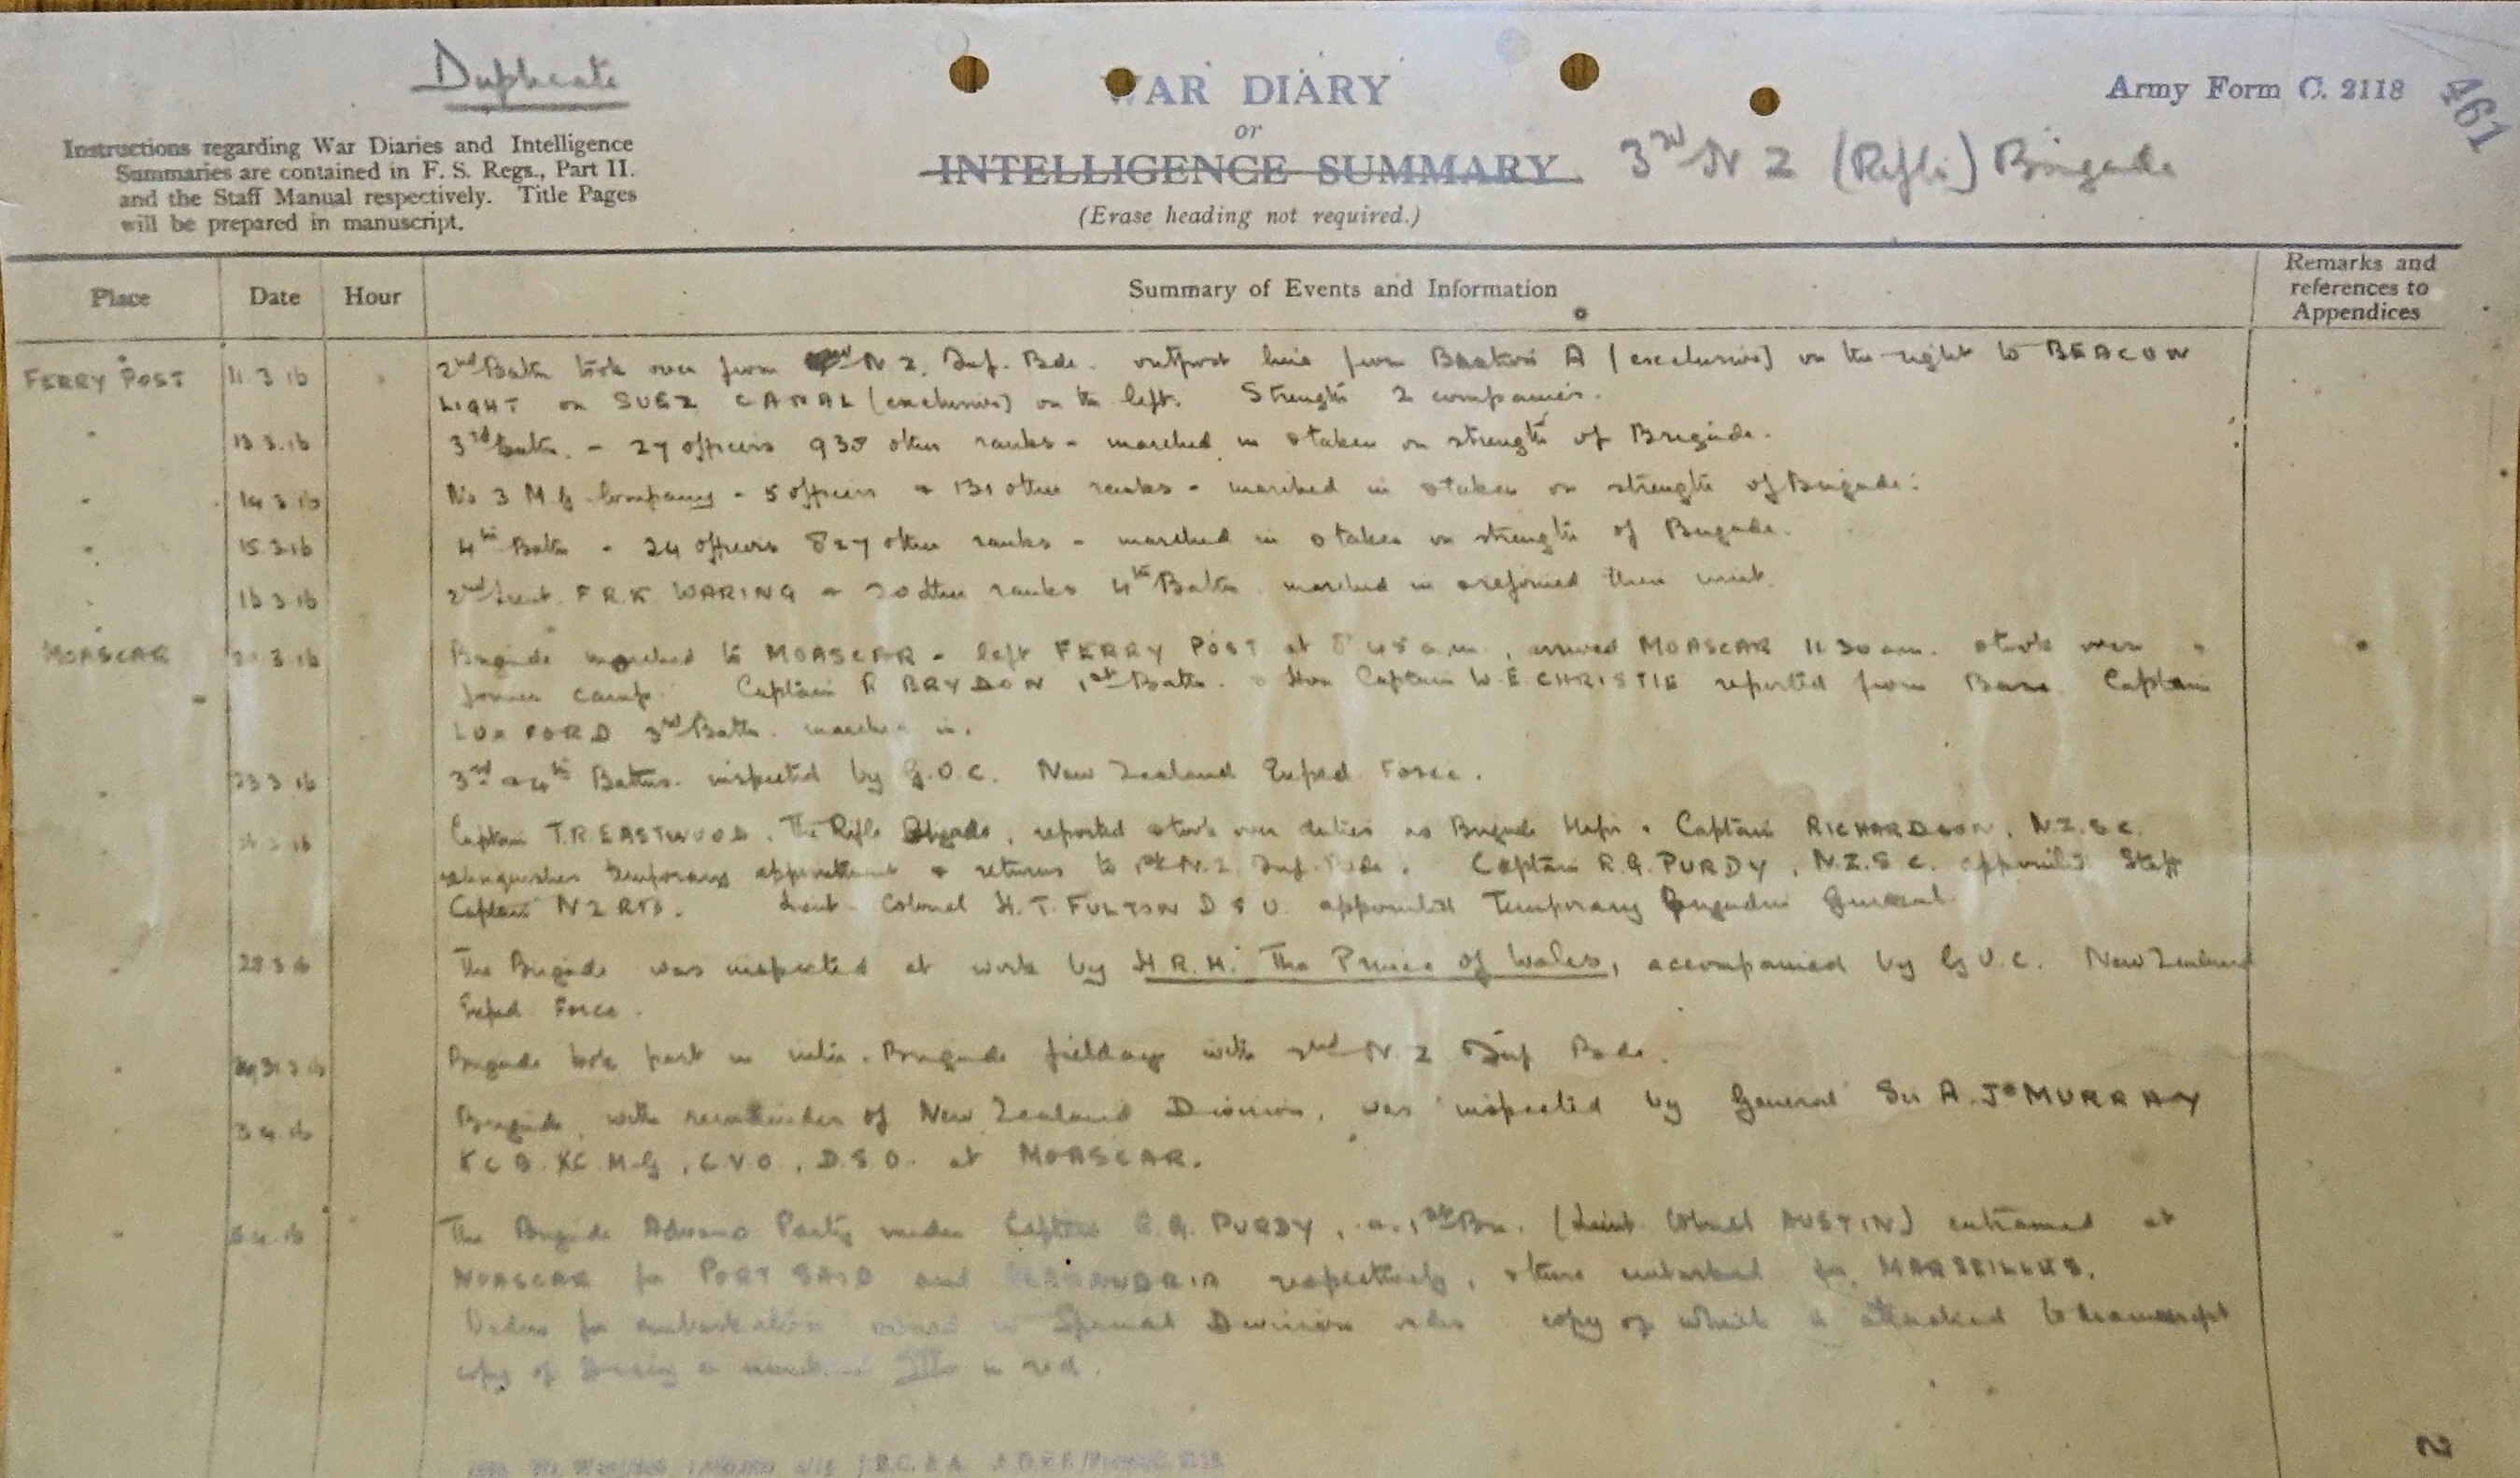 Duplicate
WAR DIARY
or
INTELLIGENCE SUMMARY
(Erase heading not required.)
Army Form C. 2118
461
3rd N Z (Rifle) Brigade
Instructions regarding War Diaries and Intelligence
Summaries are contained in F. S. Regs., Part II.
and the Staff Manual respectively. Title Pages
will be prepared in manuscript.
Place Date Hour Summary of Events and Information Remarks and references to Appendices
FERRY POST 11.3.16 2nd Battn took over from N Z. Inf. Bde. outpost line from A (exclusive) on the right to BEACON
LIGHT on SUEZ CANAL (exclusive) on the left. Strength 2 companies.
" 13.3.16 3rd Battn. - 27 officers 938 other ranks - marched in & taken on strength of Brigade.
" 14.3.16 No 3 M.G. Company - 5 officers & 131 other ranks - marched in & taken on strength of Brigade.
" 15.3.16 4th Battn - 24 officers 827 other ranks - marched in & taken on strength of Brigade.
" 16.3.16 2nd Lieut. F.R.K. WARING & 20 other ranks 4th Battn. marched in & rejoined their unit.
MOASCAR 3.16 Brigade marched to MOASCAR - left FERRY POST at 8 45 a.m., arrived MOASCAR 11 30 am. & took over
former camp. Captain R BRYDON 1st Battn. & Hon Captain W.E. CHRISTIE reported from Base. Captain
LUXFORD 3rd Battn. marched in.
" 23 3 16 3rd & 4th Battns. inspected by G.O.C. New Zealand Exped. Force.
" 3 16 Captain T.R. EASTWOOD. The Rifle Brigade, reported & took over duties as Brigade Major. Captain RICHARDSON, N.Z.S.C.
relinquishes temporary appointment & returns to 1st N.Z. Inf. Bde. Captain R.G. PURDY, N.Z.S.C. appointed Staff
Captain N Z RB. Lieut. Colonel H.T. FULTON D S O. appointed Temporary Brigadier General
" 28 3 16 The Brigade was inspected at work by H.R.H. The Prince of Wales, accompanied by G.O.C. New Zealand
Exped. Force.
" 31 3 16 Brigade took part in inter-Brigade fieldday with 2nd N. Z Inf Bde.
" 3 4 16 Brigade, with remainder of New Zealand Division, was inspected by General Sir A. J. MURRAY
K C B. K C. M. G, C.V.O, D.S.O. at MOASCAR.
" 4.16 The Brigade Advance Party under Captain R.G. PURDY, & 1st Bn. (Lieut. Colonel AUSTIN) entrained at
MOASCAR for PORT SAID and ALEXANDRIA respectively, & there embarked for MARSEILLES.
Orders for embarkation issued in Special Division order copy of which is attached to
copy of Diary & numbered III in red.
2